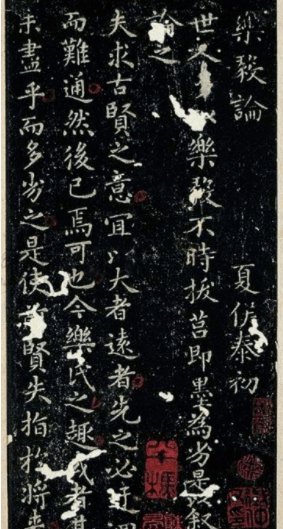 樂毅論 夏侯泰初
世人樂毅不時拔莒即墨為劣是叙
論之
夫求古賢之意宜以大者遠者先之必迂迴
而難通然後已焉可也今樂氏之趣或者其
未盡乎而多劣之是使前賢失指於將來